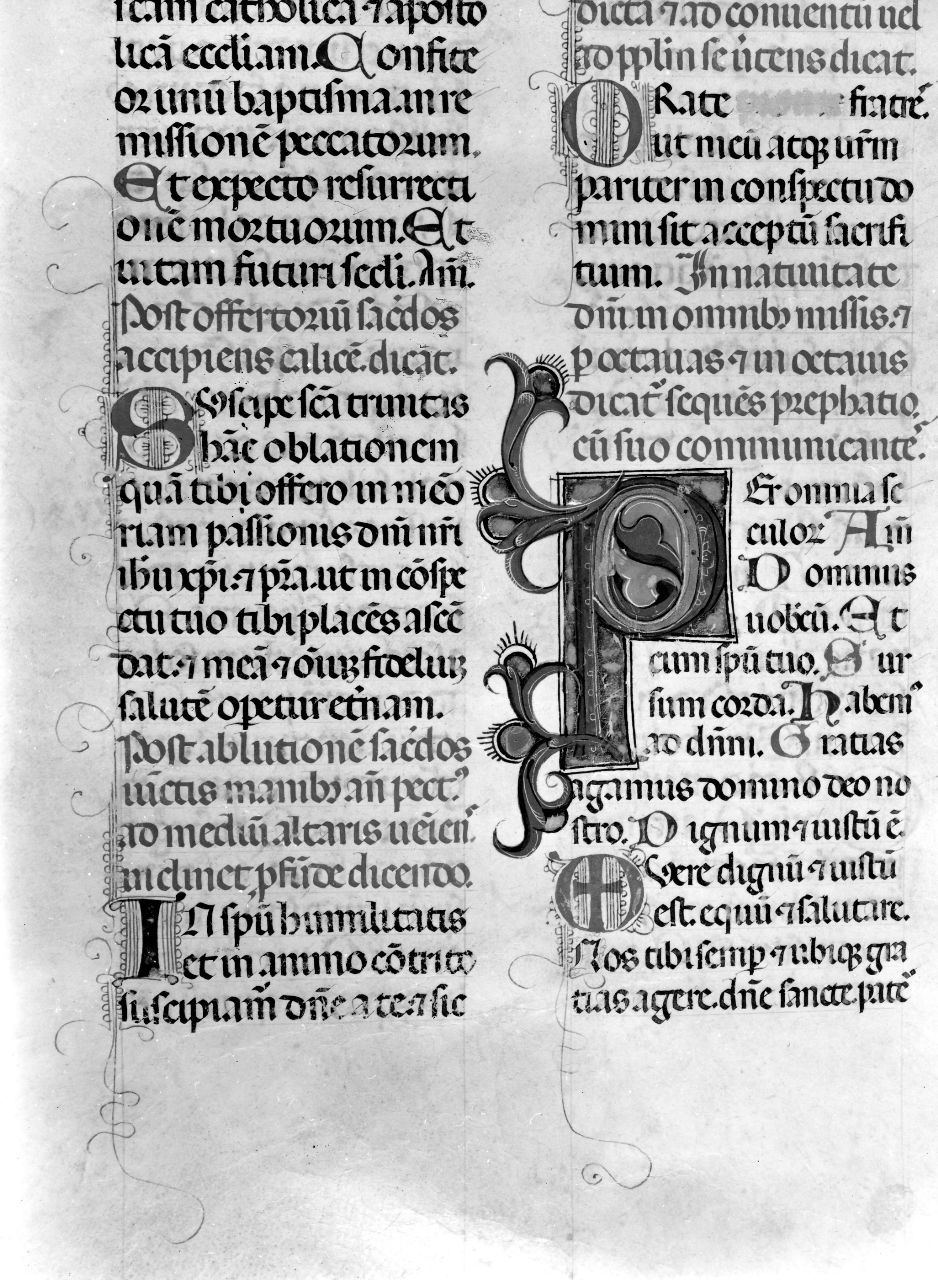 catholicā ⁊ aposto
licā eccliam. Confite
or unū baptisma in re
missionē peccatorum.
Et expecto resurrecti
onē mortuorum. Et
uitam futuri secli. Am̄.
Post offertoriū sac̄dos
accipiens calicē. dicat.
Suscipe sc̄a trinitas
hāc oblationem
quā tibi offero in mēo
riam passionis dn̄i nr̄i
ihū xp̄i. ⁊ p̄ra. ut in cōspe
ctu tuo tibi placēs ascē
dat. ⁊ meā ⁊ oīuꝫ fideliuꝫ
salutē opetur et̄nam.
Post ablutionē sac̄dos
iūctis manibꝫ an̄ pect᷒
ad mediū altaris ueīen̄
inclinet, ꝓfūde dicendo.
IN spū humilitatis
et in animo cōtrito
suscipiam᷒ dn̄e a te. ⁊ sic
dicta ⁊ ad conuentū uel
ad pplm se uertens dicat.
ORate fratre᷒.
ut meū atqꝫ ur̄m
pariter in conspectu do
mini sit acceptū sacrifi
cium. In natiuitate
dn̄i in omnibꝫ missis. ⁊
ꝑ octauas ⁊ in octauis
dicat᷒ sequēs prephatio.
cū suo communicante᷒.
Per omnia se
culoꝝ Am̄
Dominus
uobcū. Et
cum spū tuo. Sur
sum corda. Habem᷒
ad dn̄m. Gratias
agamus domino deo no
stro. Dignum ⁊ iustū ē.
Vere dignū ⁊ iustū
est. equū ⁊ salutare.
Nos tibi semꝑ ⁊ ubiqꝫ gra
tias agere. dn̄e sancte pate᷒